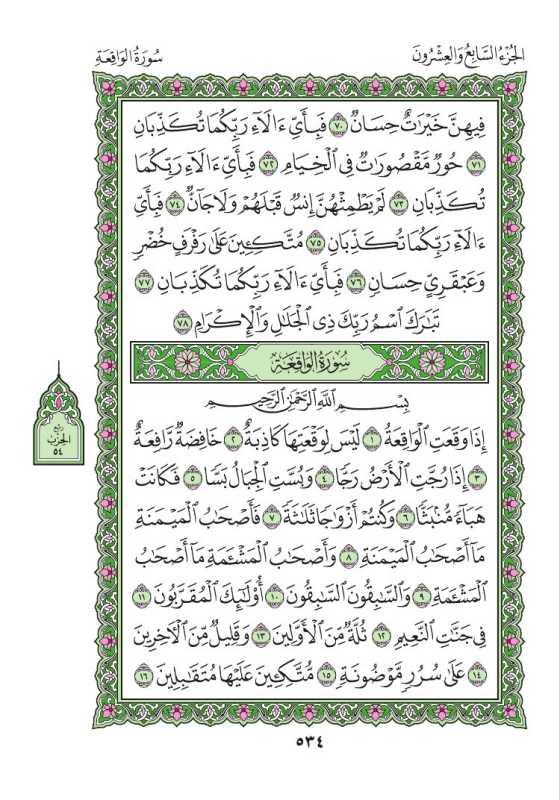 الجزء السابع والعشرون
سورة الواقعة
فِيهِنَّ خَيْرَٰتٌ حِسَانٌ ٧٠ فَبِأَيِّ ءَالَآءِ رَبِّكُمَا تُكَذِّبَانِ
٧١ حُورٌ مَّقْصُورَٰتٌ فِي ٱلْخِيَامِ ٧٢ فَبِأَيِّ ءَالَآءِ رَبِّكُمَا
تُكَذِّبَانِ ٧٣ لَمْ يَطْمِثْهُنَّ إِنسٌ قَبْلَهُمْ وَلَا جَآنٌّ ٧٤ فَبِأَيِّ
ءَالَآءِ رَبِّكُمَا تُكَذِّبَانِ ٧٥ مُتَّكِـِٔينَ عَلَىٰ رَفْرَفٍ خُضْرٍ
وَعَبْقَرِيٍّ حِسَانٍ ٧٦ فَبِأَيِّ ءَالَآءِ رَبِّكُمَا تُكَذِّبَانِ ٧٧
تَبَٰرَكَ ٱسْمُ رَبِّكَ ذِي ٱلْجَلَٰلِ وَٱلْإِكْرَامِ ٧٨
سُورَةُ الوَاقِعَةِ
بِسْمِ ٱللَّهِ ٱلرَّحْمَٰنِ ٱلرَّحِيمِ
إِذَا وَقَعَتِ ٱلْوَاقِعَةُ ١ لَيْسَ لِوَقْعَتِهَا كَاذِبَةٌ ٢ خَافِضَةٌ رَّافِعَةٌ
٣ إِذَا رُجَّتِ ٱلْأَرْضُ رَجًّا ٤ وَبُسَّتِ ٱلْجِبَالُ بَسًّا ٥ فَكَانَتْ
هَبَآءً مُّنۢبَثًّا ٦ وَكُنتُمْ أَزْوَٰجًا ثَلَٰثَةً ٧ فَأَصْحَٰبُ ٱلْمَيْمَنَةِ
مَآ أَصْحَٰبُ ٱلْمَيْمَنَةِ ٨ وَأَصْحَٰبُ ٱلْمَشْـَٔمَةِ مَآ أَصْحَٰبُ
ٱلْمَشْـَٔمَةِ ٩ وَٱلسَّٰبِقُونَ ٱلسَّٰبِقُونَ ١٠ أُو۟لَٰٓئِكَ ٱلْمُقَرَّبُونَ ١١
فِي جَنَّٰتِ ٱلنَّعِيمِ ١٢ ثُلَّةٌ مِّنَ ٱلْأَوَّلِينَ ١٣ وَقَلِيلٌ مِّنَ ٱلْءَاخِرِينَ
١٤ عَلَىٰ سُرُرٍ مَّوْضُونَةٍ ١٥ مُّتَّكِـِٔينَ عَلَيْهَا مُتَقَٰبِلِينَ ١٦
ربع
الحزب
٥٤
٥٣٤